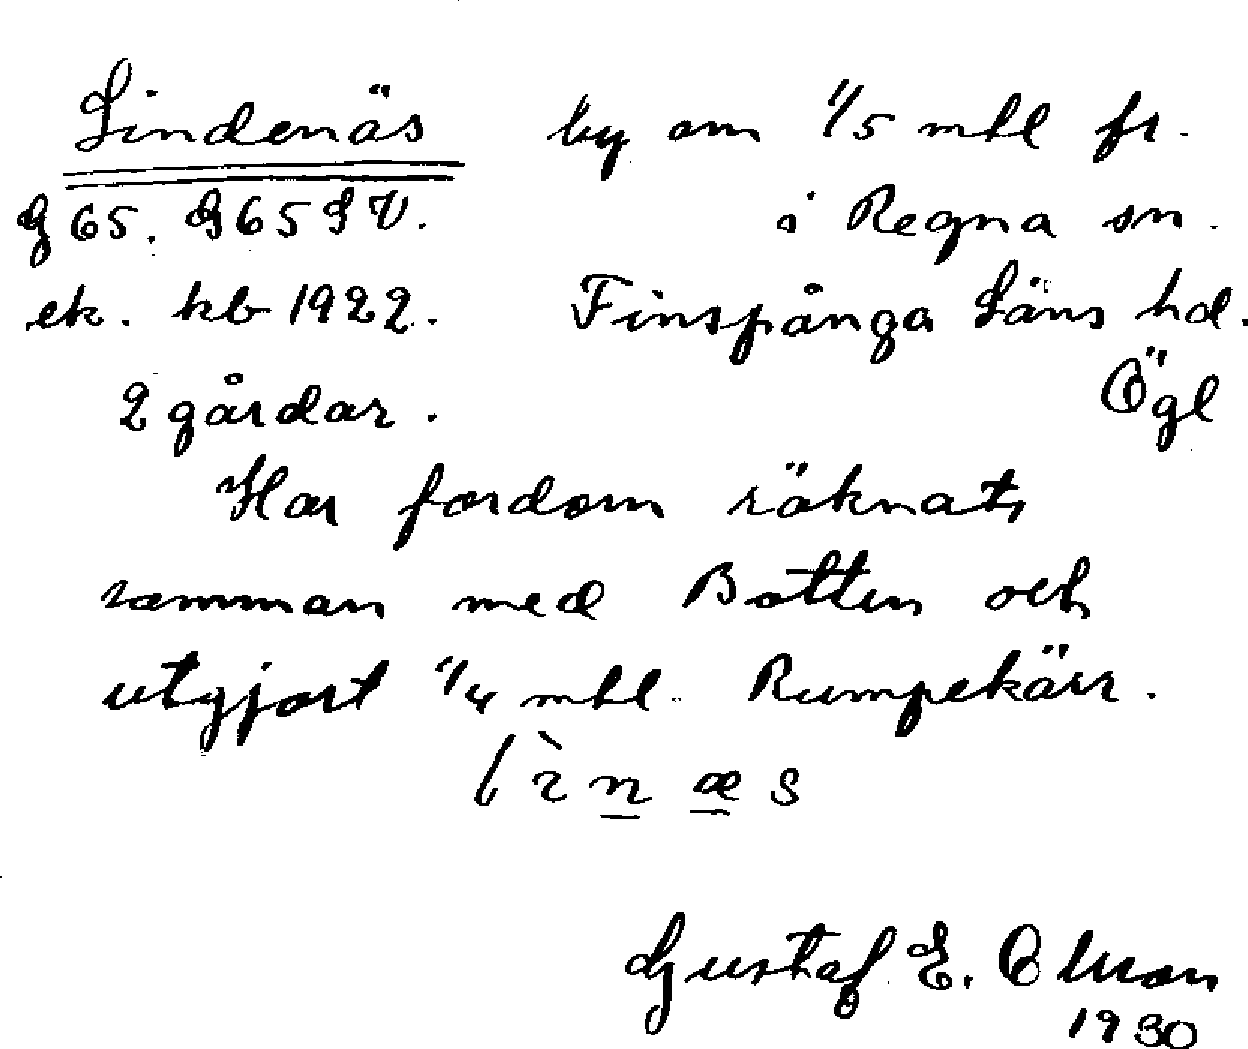 Lindenäs by om 1/5 mtl fr.
G 65. G 65 S V. i Regna sn.
ek. kb 1922. Finspånga Läns hd.
2 gårdar. Ögl
Har fordom räknats
samman med Botten och
utgjort 1/4 mtl. Rumpekärr.
Gustaf E. Olsson
1930